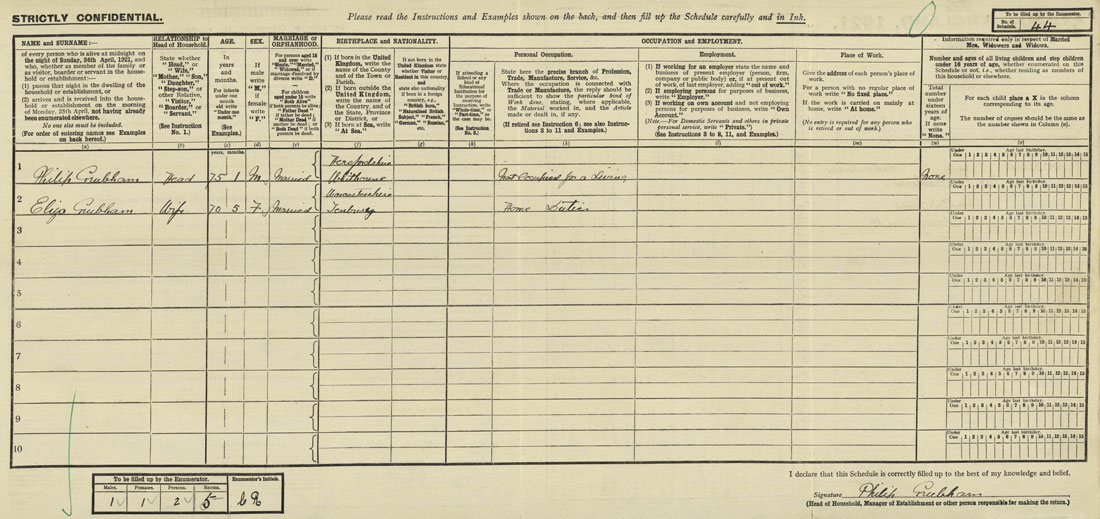 STRICTLY CONFIDENTIAL.
Please read the Instructions and Examples shown on the back, and then fill up the Schedule carefully and in Ink.
To be filled up by the Enumerator.
No. of Schedule. 44
NAME and SURNAME:—
of every person who is alive at midnight on
the night of Sunday, 24th April, 1921, and
who, whether as member of the family or
as visitor, boarder or servant in the house-
hold or establishment:—
(1) passes that night in the dwelling of the
household or establishment, or
(2) arrives and is received into the house-
hold or establishment on the morning
of Monday, 25th April, not having already
been enumerated elsewhere.
No one else must be included.
(For order of entering names see Examples
on back hereof.)
(a)
RELATIONSHIP to
Head of Household.
State whether
"Head," or
"Wife,"
"Mother," "Son,"
"Daughter,"
"Step-son," or
other Relative,
"Visitor,"
"Boarder," or
"Servant."
(See Instruction
No. 1.)
(b)
AGE.
In
years
and
months.
For infants
under one
month
old write
"Under one
month."
(See
Examples.)
(c)
years. months.
SEX.
If
male
write
"M,"
if
female
write
"F."
(d)
MARRIAGE or
ORPHANHOOD.
For persons aged 15
and over write
"Single," "Married,"
"Widowed," or if
marriage dissolved by
divorce write "D."
For children
aged under 15 write
"Both Alive"
if both parents be alive;
"Father Dead"
if father be dead;
"Mother Dead" if
mother be dead; or
"Both Dead" if both
parents be dead.
(e)
BIRTHPLACE and NATIONALITY.
(1) If born in the United
Kingdom, write the
name of the County
and of the Town or
Parish.
(2) If born outside the
United Kingdom,
write the name of
the Country, and of
the State, Province
or District, or
(3) If born at Sea, write
"At Sea."
(f)
If not born in the
United Kingdom state
whether Visitor or
Resident in this country,
and
state also nationality
if born in a foreign
country, e.g.,
"British born,"
"Naturalised British
Subject," "French,"
"German," "Russian,"
etc.
(g)
OCCUPATION and EMPLOYMENT.
If attending a
School or any
kind of
Educational
Institution for
the purpose of
receiving
Instruction, write
"Whole-time," or
"Part-time," as
the case may be.
(See Instruction
No. 2.)
(h)
Personal Occupation.
State here the precise branch of Profession,
Trade, Manufacture, Service, &c.
Where the occupation is connected with
Trade or Manufacture, the reply should be
sufficient to show the particular kind of
Work done, stating, where applicable,
the Material worked in, and the Article
made or dealt in, if any.
(If retired see Instruction 6; see also Instruc-
tions 3 to 11 and Examples.)
Employment.
(1) If working for an employer state the name and
business of present employer (person, firm,
company or public body) or, if at present out
of work, of last employer, adding "out of work."
(2) If employing persons for purposes of business,
write "Employer."
(3) If working on own account and not employing
persons for purposes of business, write "Own
Account."
(Note.—For Domestic Servants and others in private
personal service, write "Private.")
(See Instructions 3 to 8, 11, and Examples.)
(l)
Place of Work.
Give the address of each person's place of
work.
For a person with no regular place of
work write "No fixed place."
If the work is carried on mainly at
home, write "At home."
(No entry is required for any person who
is retired or out of work.)
(m)
Information required only in respect of Married
Men, Widowers and Widows.
Number and ages of all living children and step children
under 16 years of age, whether enumerated on this
Schedule or not, i.e., whether residing as members of
this household or elsewhere.
Total
number
under
sixteen
years of
age.
If none
write
"None."
(n)
For each child place a X in the column
corresponding to its age.
The number of crosses should be the same as
the number shown in Column (n).
(o)
Under One
Age last birthday.
1 2 3 4 5 6 7 8 9 10 11 12 13 14 15
1 Philip Grubham Head 75 1 M Married Herefordshire Whitbourne Not occupied for a Living None
2 Eliza Grubham Wife 70 5 F Married Worcestershire Tenbury Home Duties
3
4
5
6
7
8
9
10
To be filled up by the Enumerator.
Males. Females. Persons. Rooms.
1 1 2 5
Enumerator's Initials.
I declare that this Schedule is correctly filled up to the best of my knowledge and belief.
Signature Philip Grubham
(Head of Household, Manager of Establishment or other person responsible for making the return.)